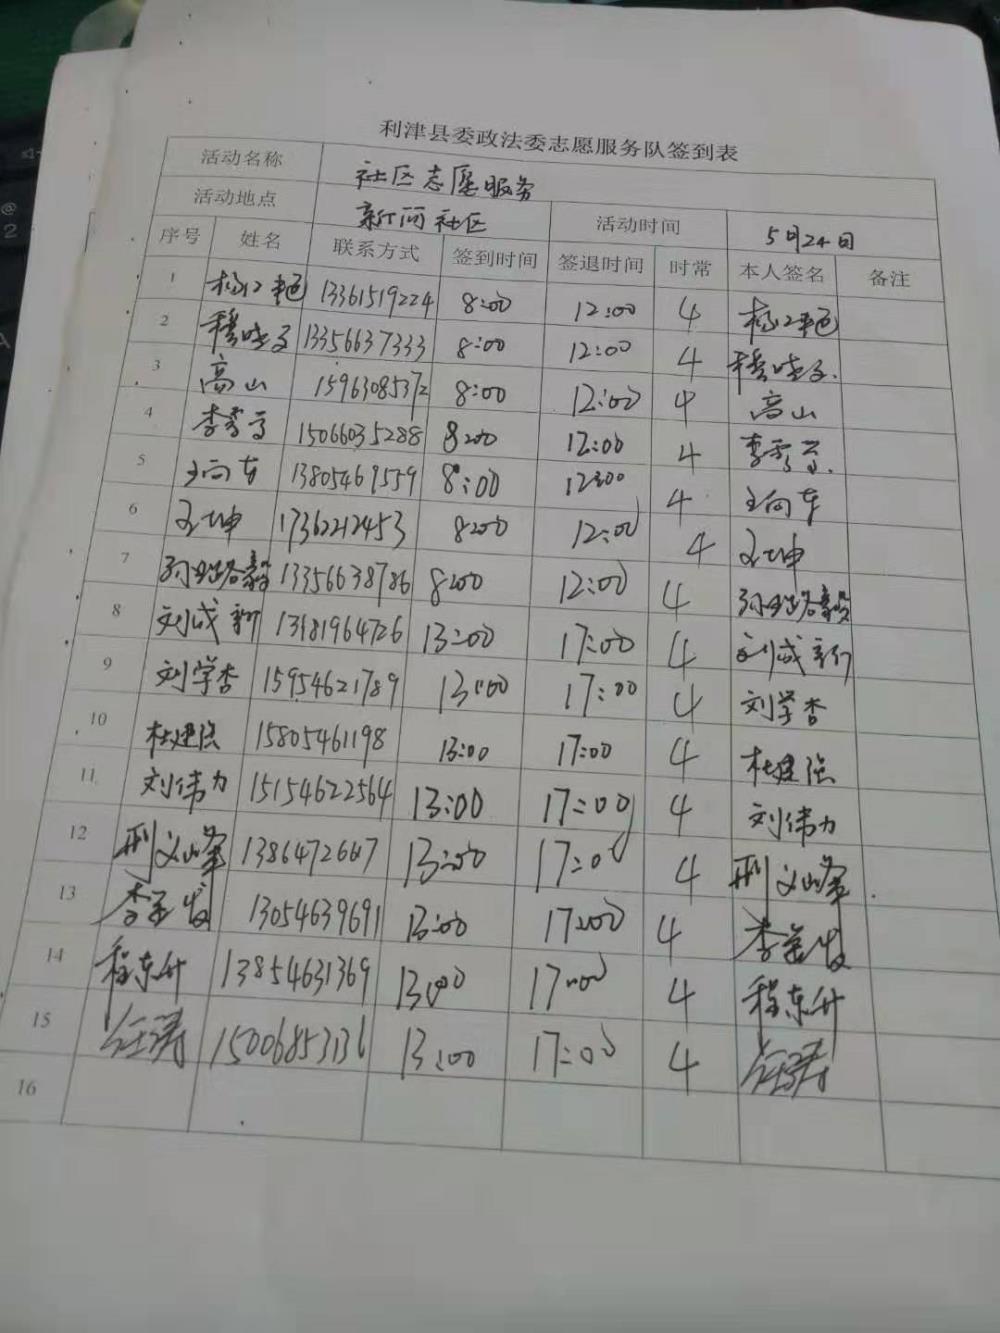 利津县委政法委志愿服务队签到表
活动名称 社区志愿服务
活动地点 新问社区 活动时间 5月24日
序号 姓名 联系方式 签到时间 签退时间 时常 本人签名 备注
1 13361519224 8:00 12:00 4
2 穆晓子 13356637333 8:00 12:00 4 穆晓子.
3 高山 15963085372 8:00 12:00 4 高山
4 李秀 15066035288 8:00 12:00 4 李秀
5 王向东 13805469559 8:00 12:00 4 王向东
6 王坤 17362212453 8:00 12:00 4 王坤
7 13356638786 8:00 12:00 4
8 刘成新 13181964726 13:00 17:00 4 刘成新
9 刘学杏 15954621789 13:00 17:00 4 刘学杏
10 杜建强 15805461198 13:00 17:00 4 杜建强
11 刘伟力 15154622564 13:00 17:00 4 刘伟力
12 荆义峰 13:00 17:00 4 荆义峰
13 李 13054639691 13:00 17:00 4 李
14 程东升 13854631369 13:00 17:00 4 程东升
15 任涛 15006853136 13:00 17:00 4 任涛
16
@
2
A